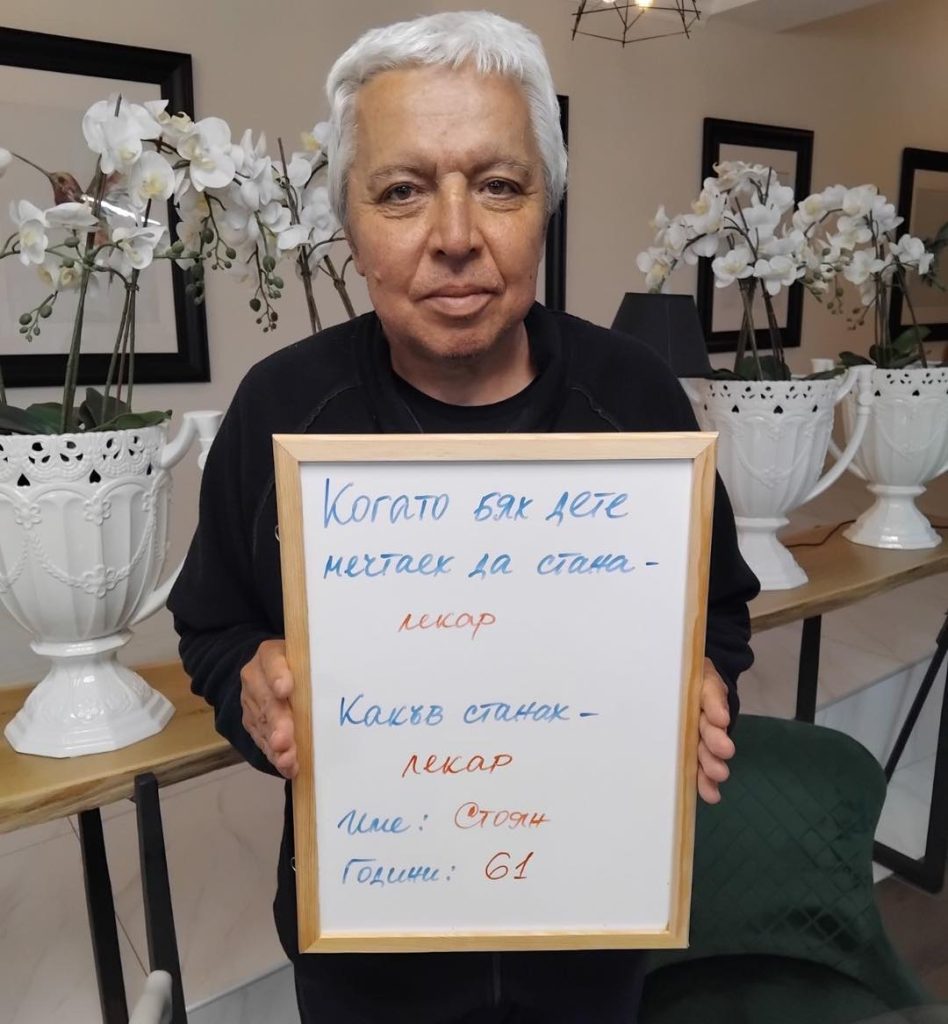 Когато бях дете
мечтаех да стана -
лекар
Какъв станах -
лекар
Име: Стоян
Години: 61